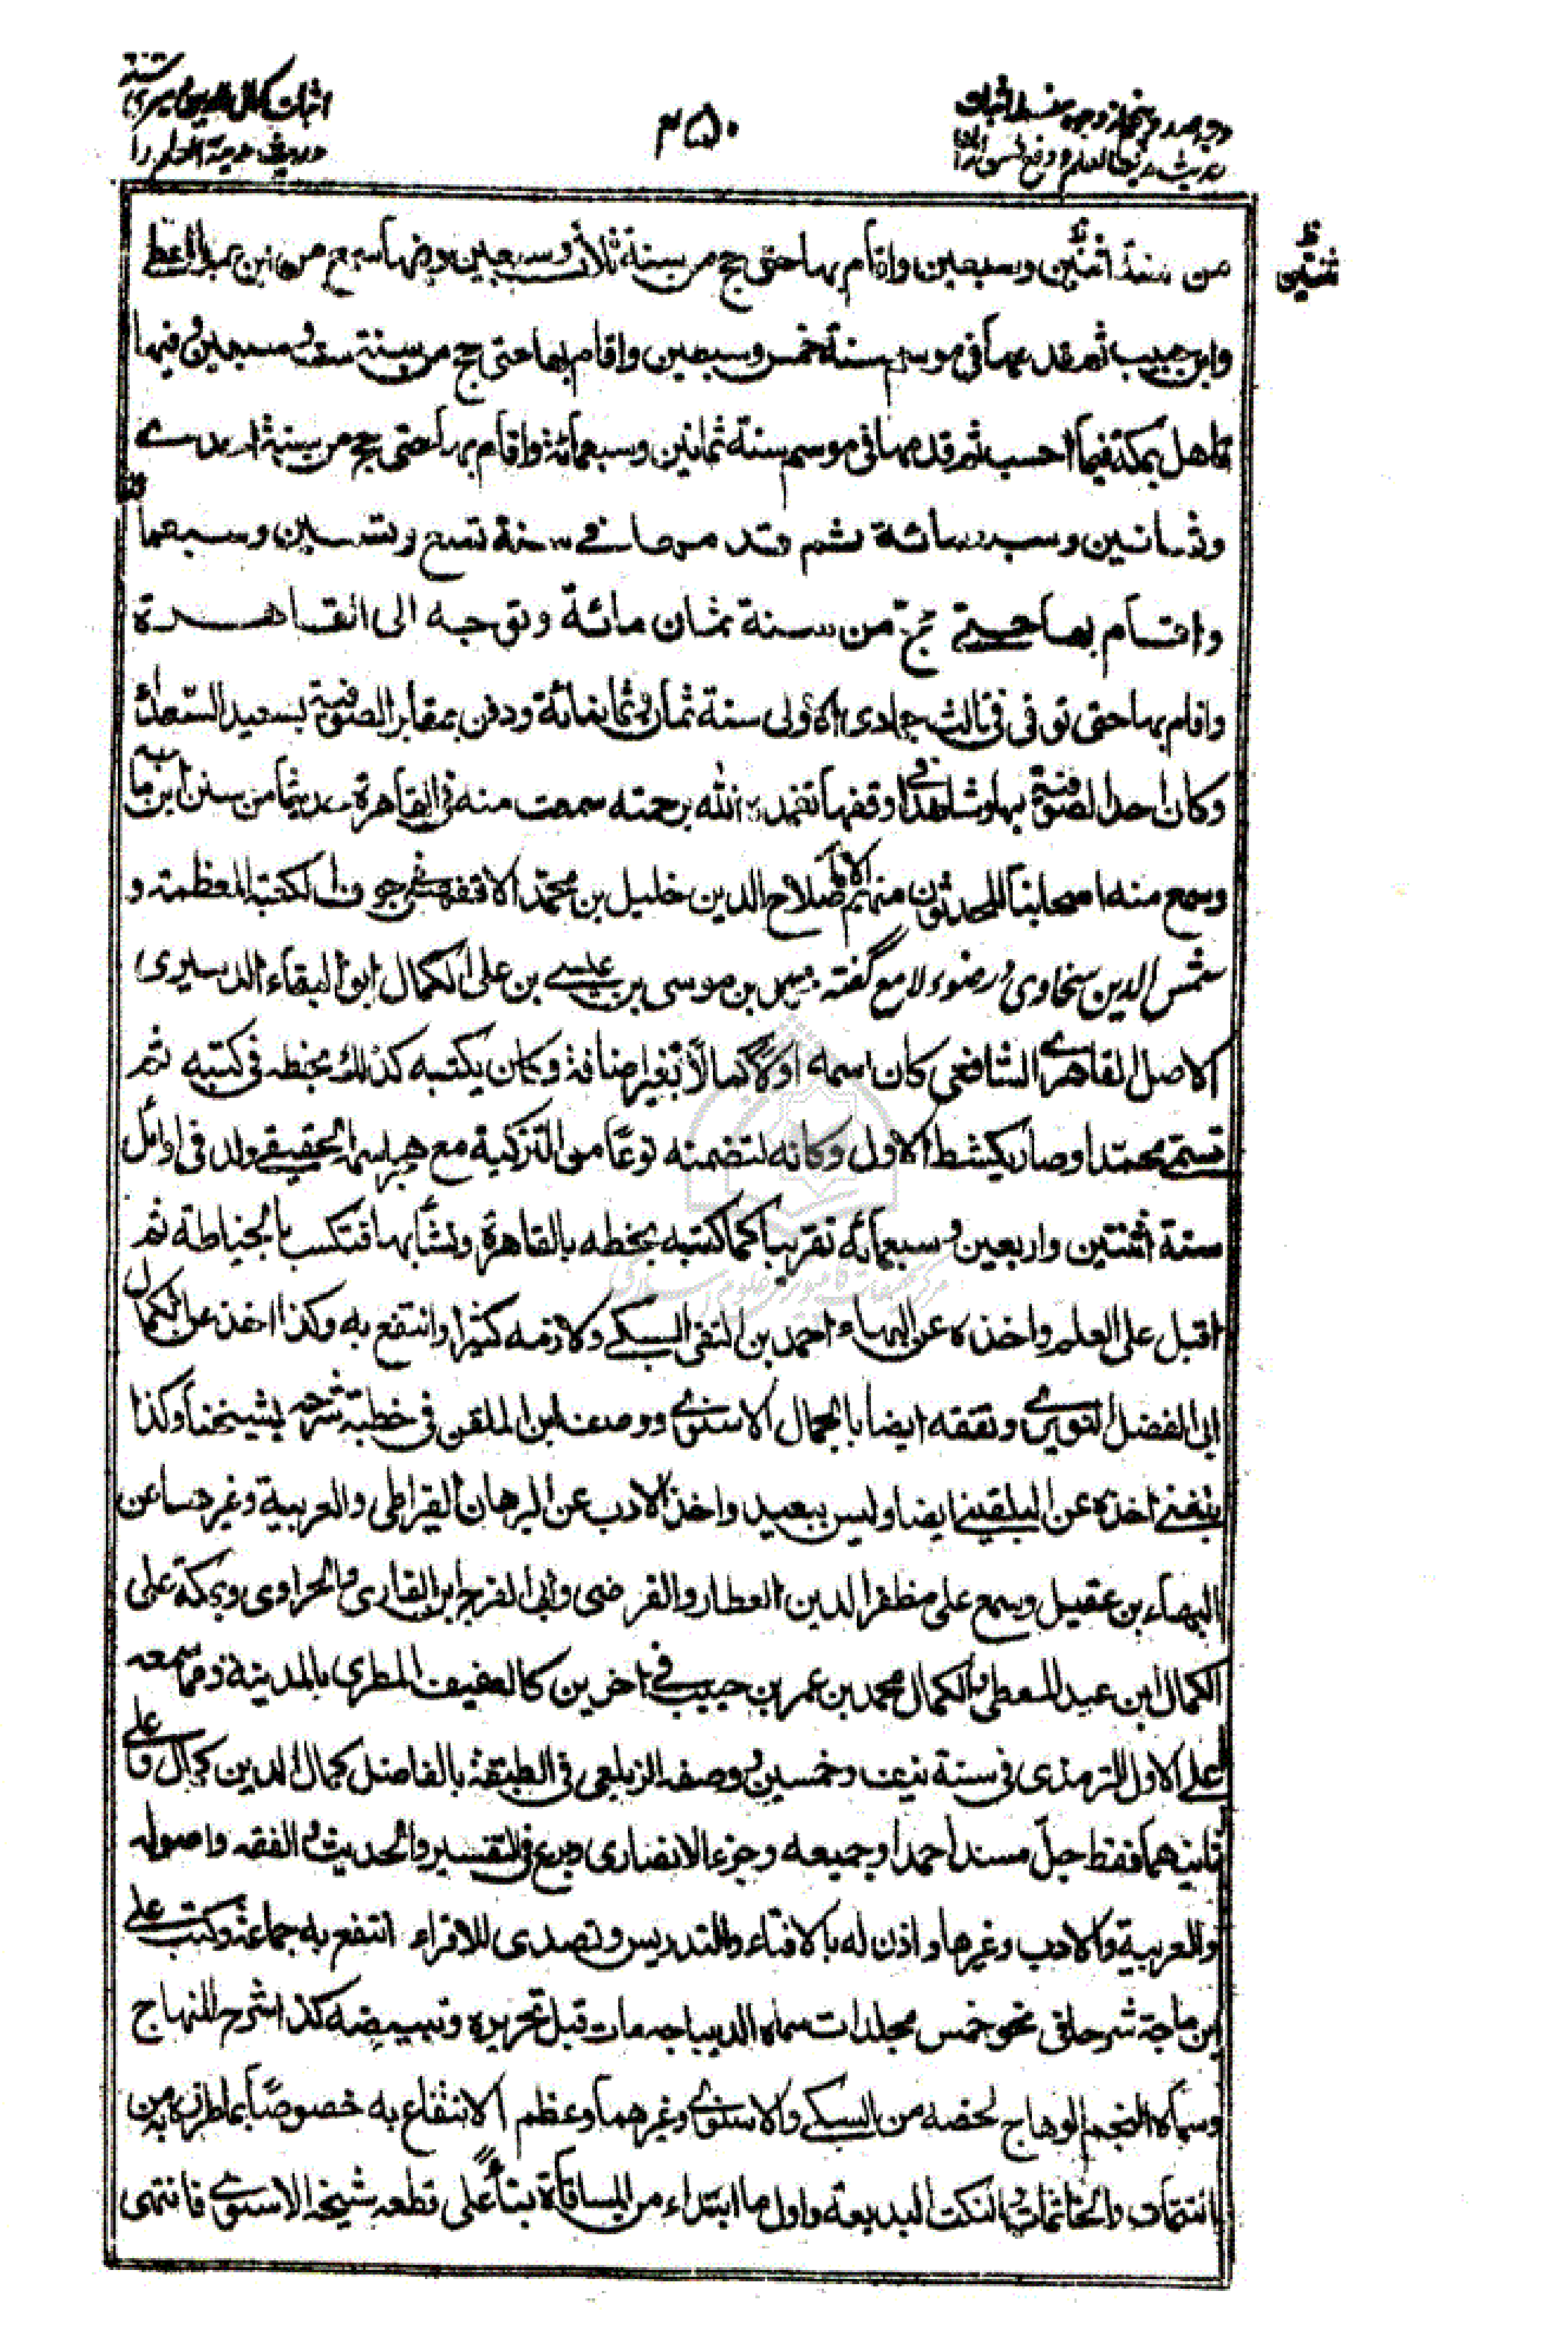 اثبات كمال الدين دميرى
۴۵۰
حديث مدينة العلم را
ثنتين
من سنة اثنتين وسبعين واقام بها حتى حج من سنة ثلاث وسبعين وفيها سمع من ابن عبد المعطى
وابن حبيب ثم قدمها فى موسم سنة خمس وسبعين واقام بها حتى حج من سنة ست وسبعين وفيها
تاهل بمكة فيما احسب ثم قدمها فى موسم سنة ثمانين وسبعمائة واقام بها حتى حج من سنة احدى
وثمانين وسبعمائة ثم قدمها فى سنة تسع وتسعين وسبعمائة
واقام بها حتى حج من سنة ثمان مائة وتوجه الى القاهرة
واقام بها حتى توفى فى ثالث جمادى الاولى سنة ثمان وثمانمائة ودفن بمقابر الصوفية بسعيد السعداء
وكان احد الصوفية بها وشاهد وقفها تغمده الله برحمته سمعت منه فى القاهرة حديثا من سنن ابن ماجه
وسمع منه اصحابنا المحدثون منهم الامام صلاح الدين خليل بن محمد الاقفهسى جوف الكعبة المعظمة و
شمس الدين سخاوى در ضوء لامع گفته محمد بن موسى بن عيسى بن على الكمال ابو البقاء الدميرى
الاصل القاهرى الشافعى كان اسمه اولا كمالا بغير اضافة وكان يكتبه كذلك بخطه فى كتبه ثم
تسمى محمدا وصار يكشط الاول وكانه لتضمنه نوعا من التزكية مع هجر اسمه الحقيقى ولد فى اوائل
سنة اثنتين واربعين وسبعمائة تقريبا كما كتبه بخطه بالقاهرة ونشأ بها فتكسب بالخياطة ثم
اقبل على العلم واخذه عن البهاء احمد بن التقى السبكى ولازمه كثيرا وانتفع به وكذا اخذ عن الكمال
ابى الفضل النويرى وتفقه ايضا بالجمال الاسنوى ووصفه ابن الملقن فى خطبة شرحه بشيخنا وكذا
بلغنى اخذه عن البلقينى ايضا وليس ببعيد واخذ الادب عن البرهان القيراطى والعربية وغيرها عن
البهاء بن عقيل وسمع على مظفر الدين العطار والفرضى وابى الفرج ابن القارى والحراوى وبمكة على
الكمال ابن عبد المعطى والكمال محمد بن عمر بن حبيب فى اخرين كالعفيف المطرى بالمدينة ومما سمعه
على الاول الترمذى فى سنة نيف وخمسين ووصفه الزيلعى فى الطبقة بالفاضل كمال الدين كمال وعلى
ثانيهما فقط جل مسند احمد او جميعه وجزء الانصارى وبرع فى التفسير والحديث والفقه واصوله
والعربية والادب وغيرها واذن له بالافتاء والتدريس وتصدى للاقراء انتفع به جماعة وكتب على
ابن ماجة شرحا فى نحو خمس مجلدات سماه الديباجه مات قبل تحريره وتبييضه كذا شرح المنهاج
وسماه النجم الوهاج لخصه من السبكى والاسنوى وغيرهما وعظم الانتفاع به خصوصا بما طرزه به من
التتمات والخاتمات والنكت البديعة واول ما ابتداء من المساقاة بناء على قطعه شيخه الاسنوى فانتهى